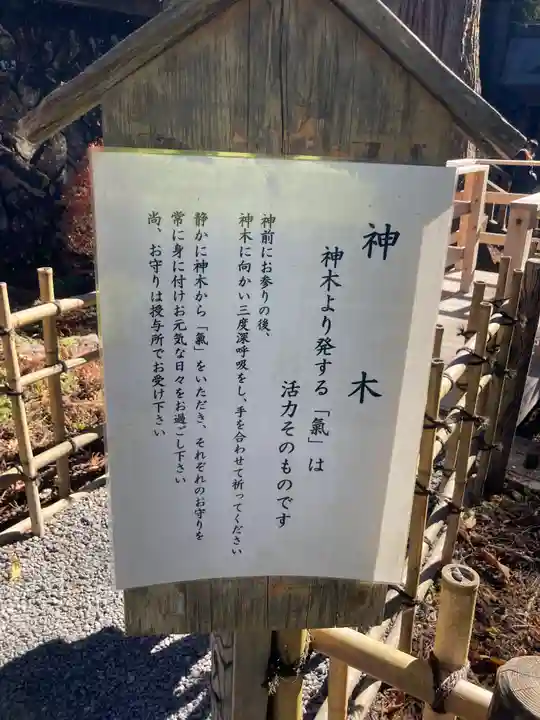 神木
神木より発する「氣」は
活力そのものです
神前にお参りの後、
神木に向かい三度深呼吸をし、手を合わせて祈ってください
静かに神木から「氣」をいただき、それぞれのお守りを
常に身に付けお元気な日々をお過ごし下さい
尚、お守りは授与所でお受け下さい